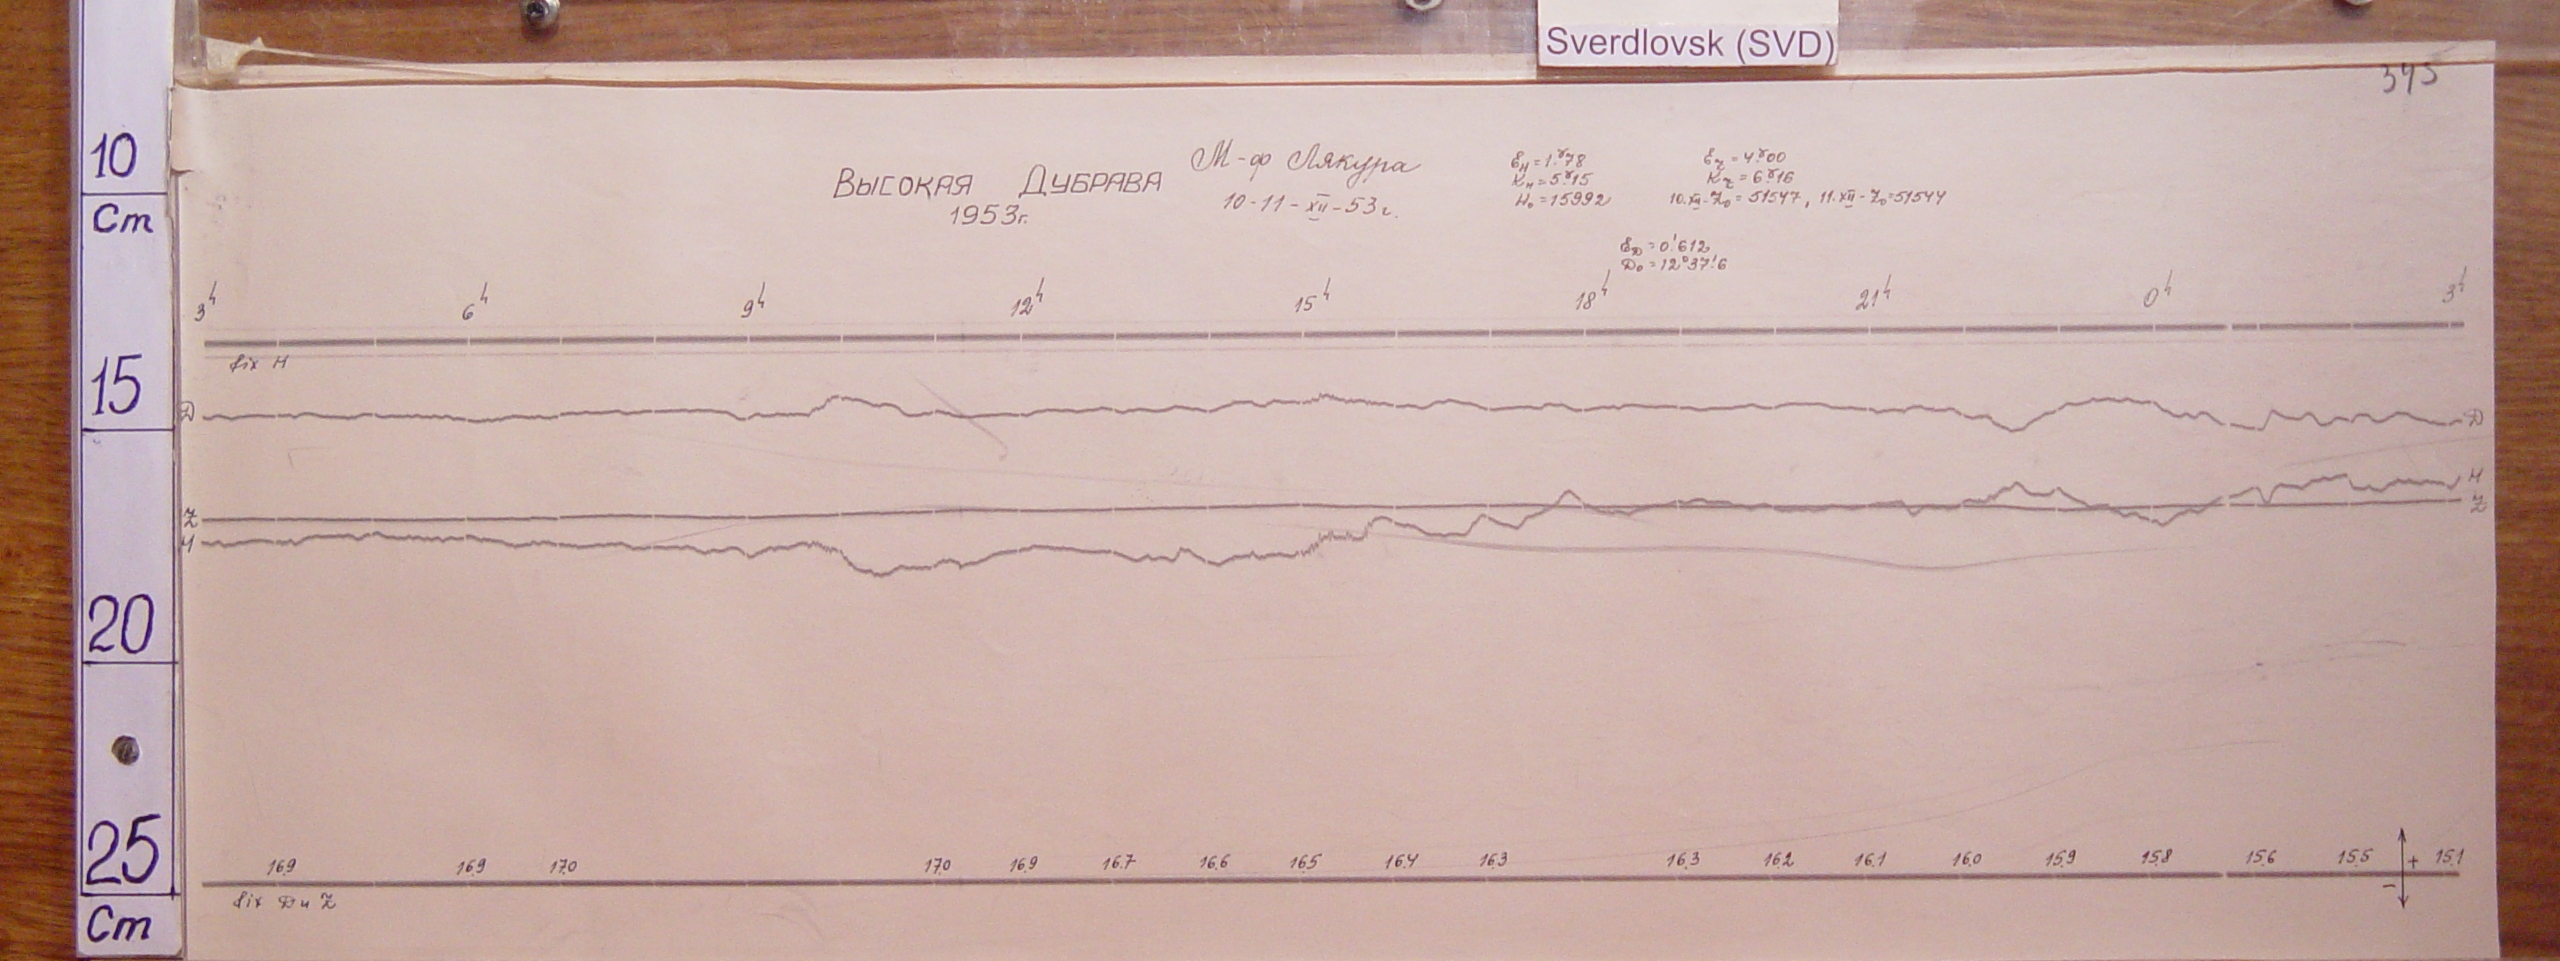 Sverdlovsk (SVD)
395
10
Cm
15
20
25
Cm
Высокая Дубрава
1953г.
М-ф Лякура
10-11-XII-53г.
Ɛн = 1.ᵞ78
Kн = 5.ᵞ15
H₀ = 15992
Ɛz = 4.ᵞ00
Kz = 6.ᵞ16
10.XII-Z₀ = 51547, 11.XII-Z₀ = 51544
ƐD = 0!612
D₀ = 12°37!6
3h 6h 9h 12h 15h 18h 21h 0h 3h
fix H
Д Д
Z H
H Z
16.9 16.9 17.0 17.0 16.9 16.7 16.6 16.5 16.4 16.3 16.3 16.2 16.1 16.0 15.9 15.8 15.6 15.5 + 15.1
-
fix D и Z